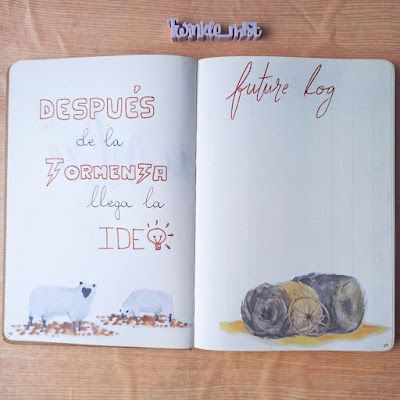 Twinkle_mst
DESPUÉS
de la
TORMENTA
llega la
IDE
future log